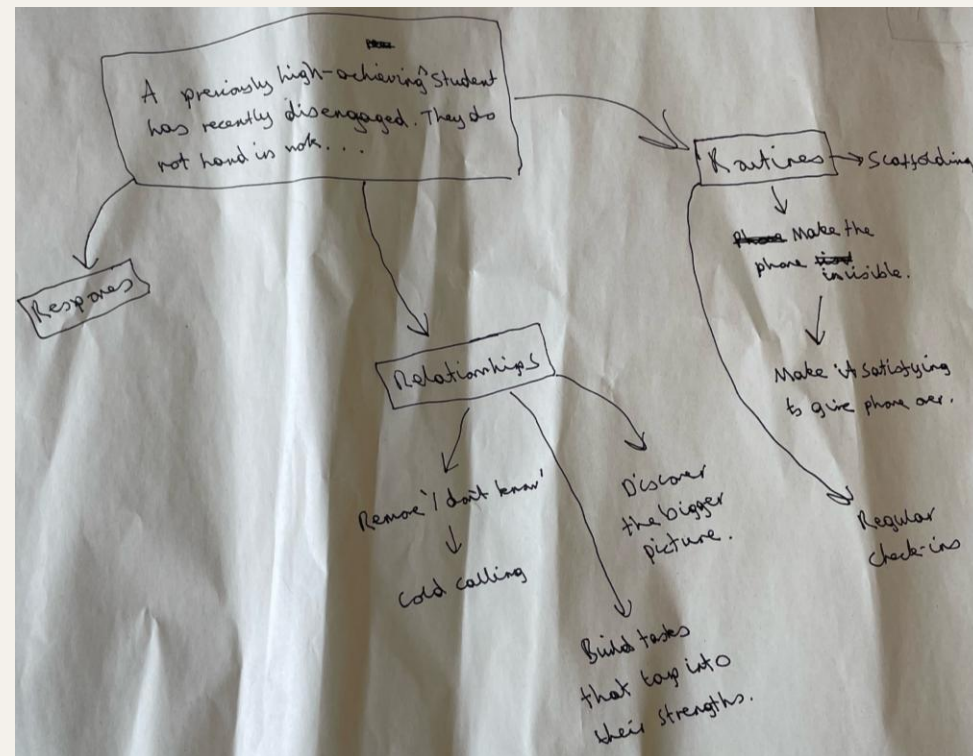 A previously high-achieving student
has recently disengaged. They do
not hand in work...
Routines
Scaffolding
Make the
phone invisible.
Make it satisfying
to give phone over.
Regular
check-ins
Relationships
Remove 'I don't know'
Cold calling
Discover
the bigger
picture.
Build tasks
that tap into
their strengths.